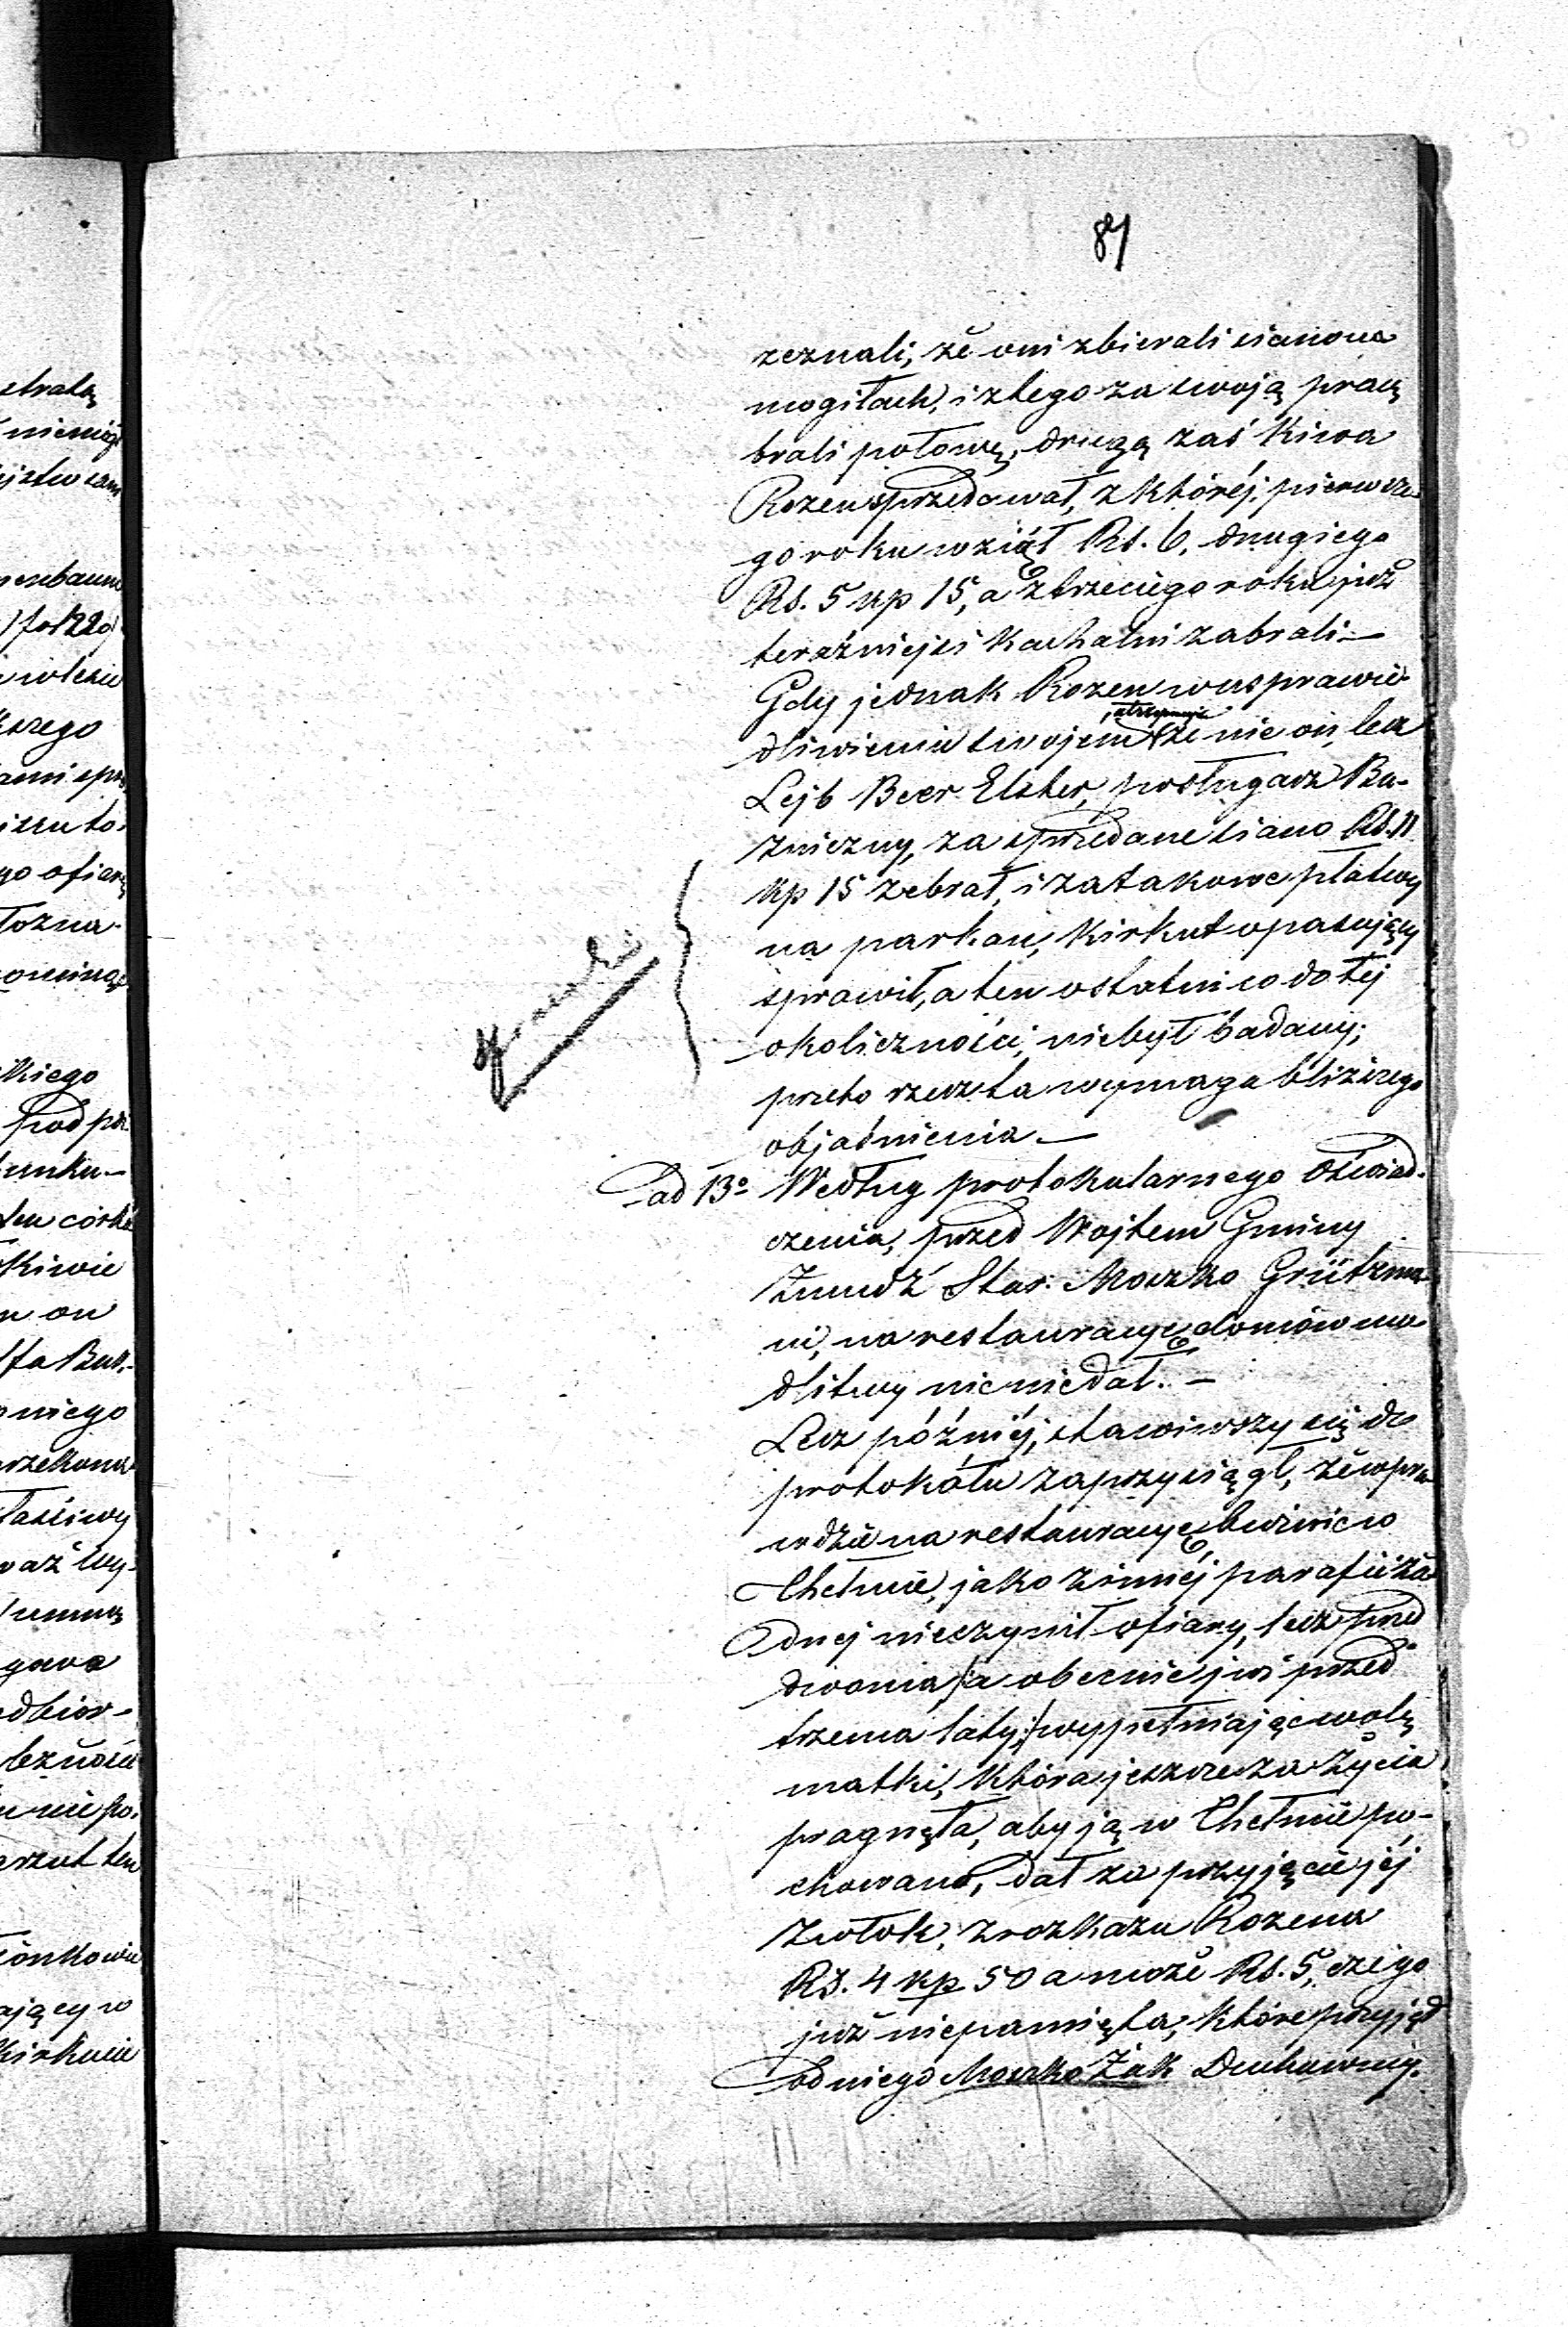 87
zeznali, że oni zbierali siano na
mogiłach, i z tego za swoją pracę
brali połowę, drugą zaś Kiwa
Rozen sprzedawał, z któréj, pierwsze
go roku wziął Rs. 6, drugiego
Rs. 5 kp 15, a z trzeciego roku już
teraźniejsi Kachalni zabrali —
Gdy jednak Rozen w usprawie
dliwieniu swojem że nie on, lecz
utrzymuje
Lejb Beer Elster, posługacz Bu-
źniczny, za sprzedane siano Rs. 11
kp 15 zebrał, i za takowe płatwy
na parkan, Kirkut opasujący
sprawił, a ten ostatni co do téj
okoliczności, niebył badany;
przeto rzecz ta wymaga bliższego
objaśnienia —
ad 13º Według protokularnego oświad-
czenia, przed Wójtem Gminy
Żmudź Star. Moszko Grützma
ni, na restauracyę domów mo
dlitwy nic nie dał. —
Lecz późniéj, stawiwszy się do
protokółu zaprzysiągł, że wpra
wdzie na restauracyę bużnic w
Chełmie, jako z innéj parafii ża
dnej nieczynił ofiary, lecz przed
dwoma /a obecnie już przed
trzema laty:/ wypełniając wolę
matki, która jeszcze za życia
pragnęła, aby ją w Chełmie po-
chowano, dał za przyjęcie jéj
zwłok, z rozkazu Rozena
Rs. 4 kp 50 a może Rs. 5, czego
już niepamięta, które przyjął
od niego Moszko Żak Duchowny.
stratą
niemóg
enbaum
kszego
go ofiarę
kiego
pod
ten córki
on
niego
właściwy
summę
mie po-
ający w
kirkucie